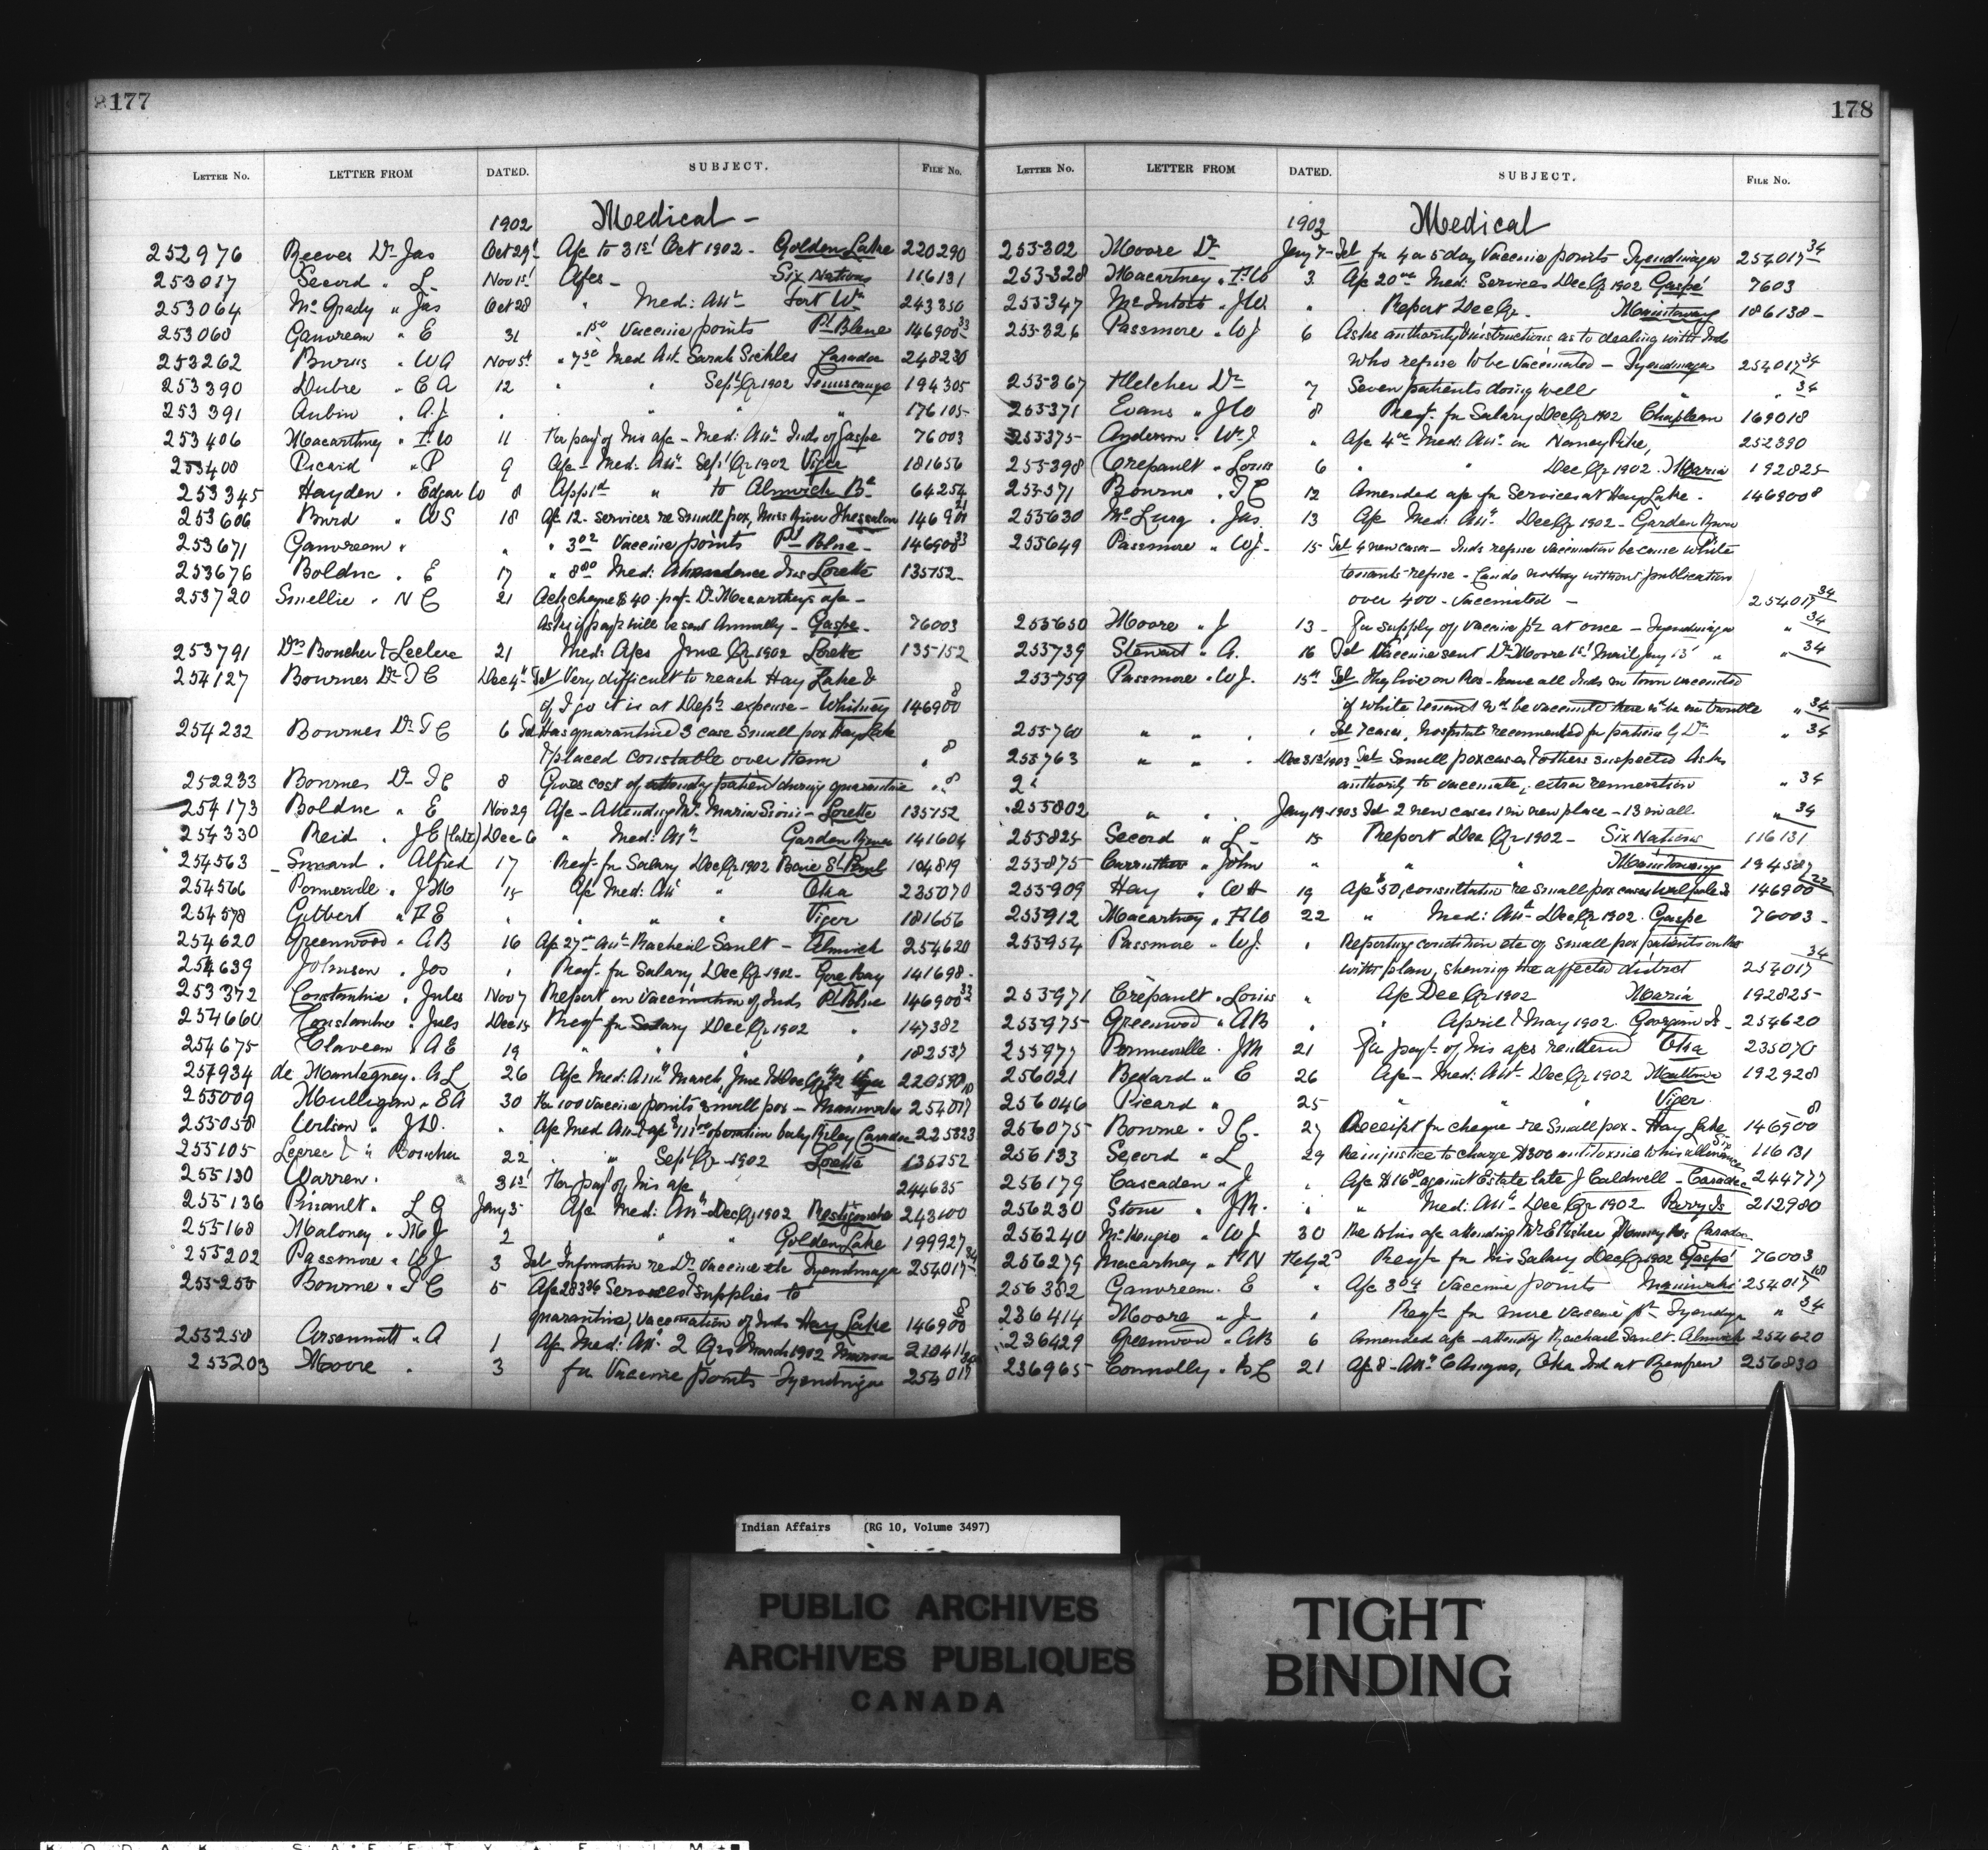 177
LETTER NO. LETTER FROM DATED. SUBJECT. FILE NO.
1902 Medical -
252976 Reeves Dr Jas Oct 29 A/c to 31st Oct 1902 - Golden Lake 220290
253017 Secord " L - Nov 1st A/cs - Six Nations 116131
253064 McGrady " Jas Oct 28 " Med: Attce Fort Wm 243350
253068 Ganvreau " E 31 " 1.50 Vaccine points Pt Bleue 146900 33
253262 Burns " W A Nov 5th " 7.50 Med Att. Sarah Sickles Caradoc 248230
253390 Dubre " C A 12 " " Sept Qr 1902 Temiscangs 194305
253391 Aubin " A.J. " " " " 176105
253406 Macartney " F.W 11 For pay of his a/c - Med: Attce Inds of Gaspe 76003
253408 Picard " P 9 A/c - Med: Attce Sept Qr 1902 Viger 181656
253345 Hayden " Edgar W 8 App'd " to Alnwick Bd 64254
253606 Burd " W S 18 A/c 12 - services re Small pox, Miss River Thessalon 146900 21
253671 Ganvreau " " " 3.02 Vaccine points Pt Bleue - 146900 33
253676 Bolduc " E 17 " 8.00 Med: Attendance Inds Lorette 135152
253720 Smellie " N C 21 Ack cheque $40 - pay't Dr Macartney's a/c -
Asks if pay't will be sent Annually - Gaspe - 76003
253791 Drs Boucher & Leclerc 21 Med: A/cs June Qr 1902 Lorette 135152
254127 Bournes Dr T C Dec 4th Tel Very difficult to reach Hay Lake &
if I go it is at Dep'ts expense - Whitney 146900 8
254232 Bournes Dr T C 6 Tel Has quarantined 3 case Small pox Hay Lake
& placed constable over them " 8
252233 Bournes Dr T C 8 Gives cost of attendg patient during quarantine " 8
254173 Bolduc " E Nov 29 A/c - Attending Mrs Maria Sioui - Lorette 135152
254330 Reid " J E (late) Dec 6 " Med: Attce Garden River 141604
254563 Simard " Alfred 17 Reqt. for Salary Dec Qr 1902 Baie St Paul 104819
254566 Pommerville " J M 15 A/c Med: Att " Oka 235070
254578 Gilbert " F E " " " " Viger 181656
254620 Greenwood " A B 16 A/c 27 - Attce Racheal Sault - Alnwick 254620
254639 Johnson " Jos " Reqt. for Salary Dec Qr 1902 - Gore Bay 141698
253372 Constantin " Jules Nov 7 Report on Vaccination of Inds Pt Bleue 146900 33
254660 Constantin " Jules Dec 15 Reqt for Salary Dec Qr 1902 " 147382
254675 Claveau " A E 19 " " " " 182537
257934 de Montegney " A L 26 A/c Med: Attce March, June & Dec Qr 1902 Viger 220590
255009 Mulligan " E A 30 For 100 Vaccine points small pox - Maniwaki 254017 18
255058 Wilson " J D. " A/c Med Att & a/c operation baby Riley Caradoc 225823
255105 Leclerc & " Boucher 22 " " Sept Qr 1902 Lorette 135152
255130 Warren " 31st For pay of his a/c 244635
255136 Pinault " L G Jany 5 A/c Med: Attce Dec Qr 1902 Restigouche 243100
255168 Maloney " M J 2 " " Golden Lake 199927
255202 Passmore " W J 3 Tel Information re Dr Vaccine etc Tyendinaga 254017 34
255255 Bourne " T C 5 A/c 283.36 Services & Supplies to
quarantine, Vaccination of Inds Hay Lake 146900 8
255258 Arsennault " A 1 A/c Med: Att. 2 Qrs March 1902
255203 Moore " 3 for Vaccine points Tyendinaga 254017
178
LETTER NO. LETTER FROM DATED. SUBJECT. FILE NO.
1903 Medical
255302 Moore Dr Jany 7 - Tel for 4 or 5 doz Vaccine points Tyendinaga 254017 34
255328 Macartney " F W 3 A/c 20.00 Med: Services Dec Qr 1902 Gaspé 7603
255347 McIntosh " J W. " Report Dec Qr - Manitowang 186138 -
255326 Passmore " W J 6 Asks authority & instructions as to dealing with Inds
who refuse to be Vaccinated - Tyendinaga 254017 34
255367 Fletcher Dr 7 Seven patients doing well " " 34
255371 Evans " J W 8 Reqt. for Salary Dec Qr 1902 Chapleau 169018
255375 Anderson " W J. " A/c 4.00 Med: Attce on Nancy Pike, 252390
255398 Crepault " Louis 6 " " Dec Qr 1902 Maria 192825
255571 Bourne " T C 12 Amended a/c for Services at Hay Lake - 146900 8
255630 McLurg " Jas 13 A/c Med: Attce Dec Qr 1902 - Garden River
255649 Passmore " W J - 15 Tel 4 new cases - Inds refuse Vaccination because White
tenants refuse - Can do nothing without publication
over 400 - Vaccinated - 254017 34
255650 Moore " J 13 - For supply of Vaccine pts at once - Tyendinaga " 34
255739 Stewart " A. 16 Tel Vaccine sent Dr Moore 1st Mail Jany 15 " " 34
255759 Passmore " W J. 15th Tel They live on Res - have all Inds in town vaccinated
if white tenants wd be vaccinated there wd be no trouble " 34
255760 " " " Tel 7 cases, hospitals recommended for patients by Dr " 34
255763 " " Dec 31st 1903 Tel Small pox cases & others suspected Asks
authority to vaccinate, extra remuneration " 34
255802 " " Jany 19 - 1903 Tel 2 new cases 1 in new place - 13 in all " 34
255825 Secord " L - 15 Report Dec Qr 1902 - Six Nations 116131
255875 Carruthers " John " " " Manitowaning 194587
255909 Hay " W H 19 A/c $50, consultation re Small pox cases Walpole Is 146900 22
255912 Macartney " F W 22 " Med: Attce Dec Qr 1902 - Gaspe 76003 -
255954 Passmore " W J. " Reporting condition etc of small pox patients on the
with plan, shewing the affected district 254017 34
255971 Crépault " Louis " A/c Dec Qr 1902 Maria 192825
255975 Greenwood " A B " " April & May 1902. Georgina Is - 254620
255977 Pommerville " J M 21 For payt of his a/cs rendered Oka 235070
256021 Bedard " E 26 A/c - Med: Att. Dec Qr 1902 192928
256046 Picard " 25 " " " Viger
256075 Bourne " T C - 27 Receipt for cheque re Small pox - Hay Lake 146900 8
256133 Secord " L 29 Re injustice to charge $300 antitoxine to his allowance Six 116131
256179 Cascaden " J " A/c $16.80 against Estate late J Caldwell - Caradoc 244777
256230 Stone " J R. " " Med: Attce Dec Qr 1902 Parry Is 212980
256240 McKenzie " W J 30 Re to his a/c attending Wm E Fisher Muncey Res Caradoc
256279 Macartney " F N Feby 2nd Reqt for his Salary Dec Qr 1902 Gaspé 76003
256382 Ganvreau " E " A/c 3.04 Vaccine points Maniwaki 254017 18
236414 Moore " J - " Reqt for more Vaccine pts Tyendiga " 34
236429 Greenwood " A B 6 Amended a/c - attendg Rachael Sault - Alnwick 254620
236965 Connolly " B C 21 A/c 8 - Attce Oka Ind at Renfrew 256830
Indian Affairs (RG 10, Volume 3497)
PUBLIC ARCHIVES
ARCHIVES PUBLIQUES
CANADA
TIGHT
BINDING
KODAK SAFETY FILM